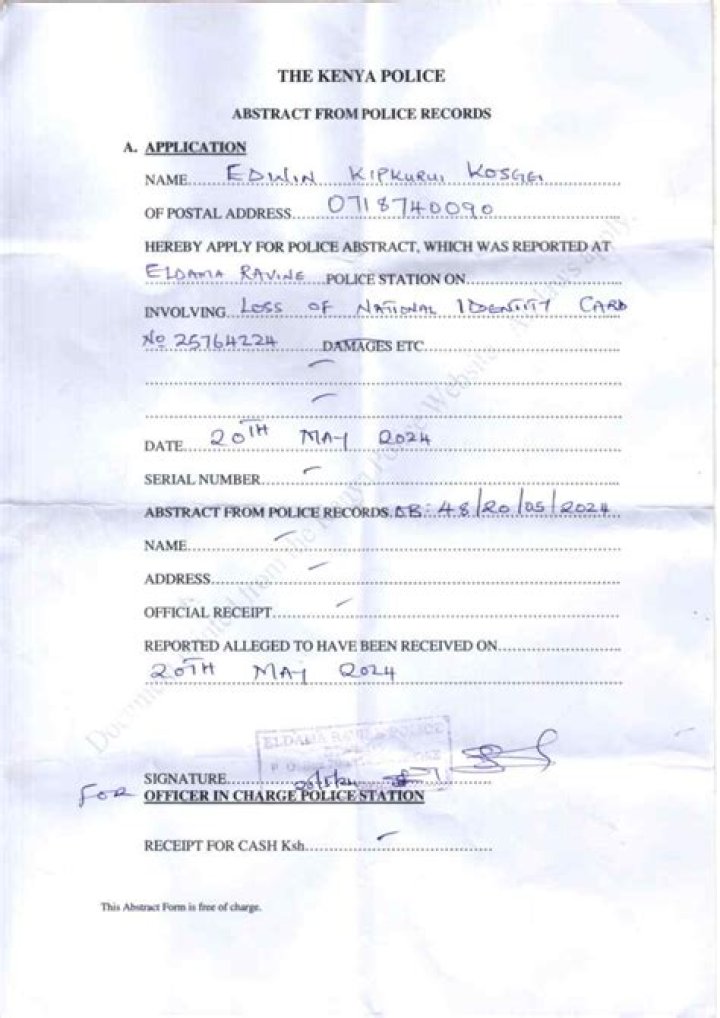 THE KENYA POLICE
ABSTRACT FROM POLICE RECORDS
A. APPLICATION
NAME EDWIN KIPKURUI KOSGEI
OF POSTAL ADDRESS 0718740090
HEREBY APPLY FOR POLICE ABSTRACT, WHICH WAS REPORTED AT
ELDAMA RAVINE POLICE STATION ON
INVOLVING LOSS OF NATIONAL IDENTITY CARD
No 25764224 DAMAGES ETC
DATE 20TH MAY 2024
SERIAL NUMBER
ABSTRACT FROM POLICE RECORDS OB: 48/20/05/2024
NAME
ADDRESS
OFFICIAL RECEIPT
REPORTED ALLEGED TO HAVE BEEN RECEIVED ON
20TH MAY 2024
ELDAMA POLICE
SIGNATURE 20/5/24
FOR OFFICER IN CHARGE POLICE STATION
RECEIPT FOR CASH Ksh
This Abstract Form is free of charge.